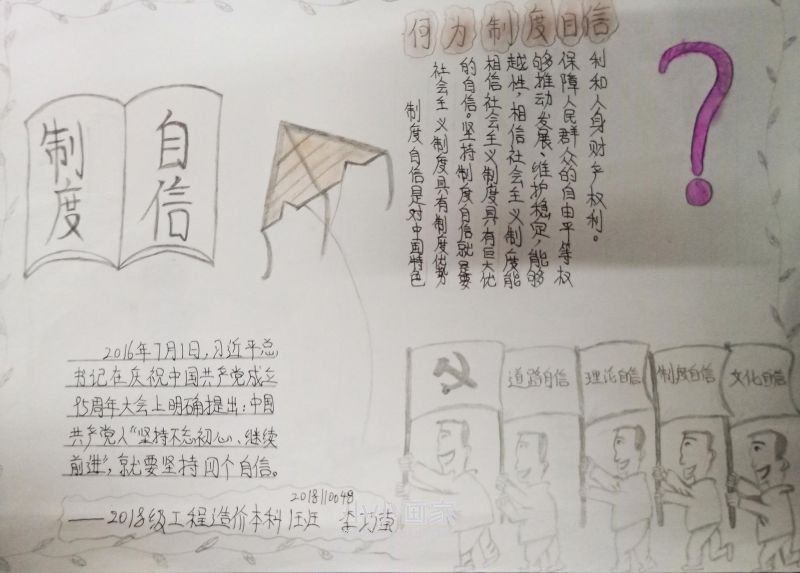 制度
自信
何为制度自信
?
制度自信是对中国特色
社会主义制度具有制度优势
的自信。坚持制度自信就是要
相信社会主义制度具有巨大优
越性,相信社会主义制度能
够推动发展、维护稳定,能够
保障人民群众的自由平等权
利和人身财产权利。
2016年7月1日,习近平总
书记在庆祝中国共产党成立
95周年大会上明确提出:中国
共产党人“坚持不忘初心、继续
前进”,就要坚持四个自信。
2018110048
——2018级工程造价本科
画家
道路自信
理论自信
制度自信
文化自信